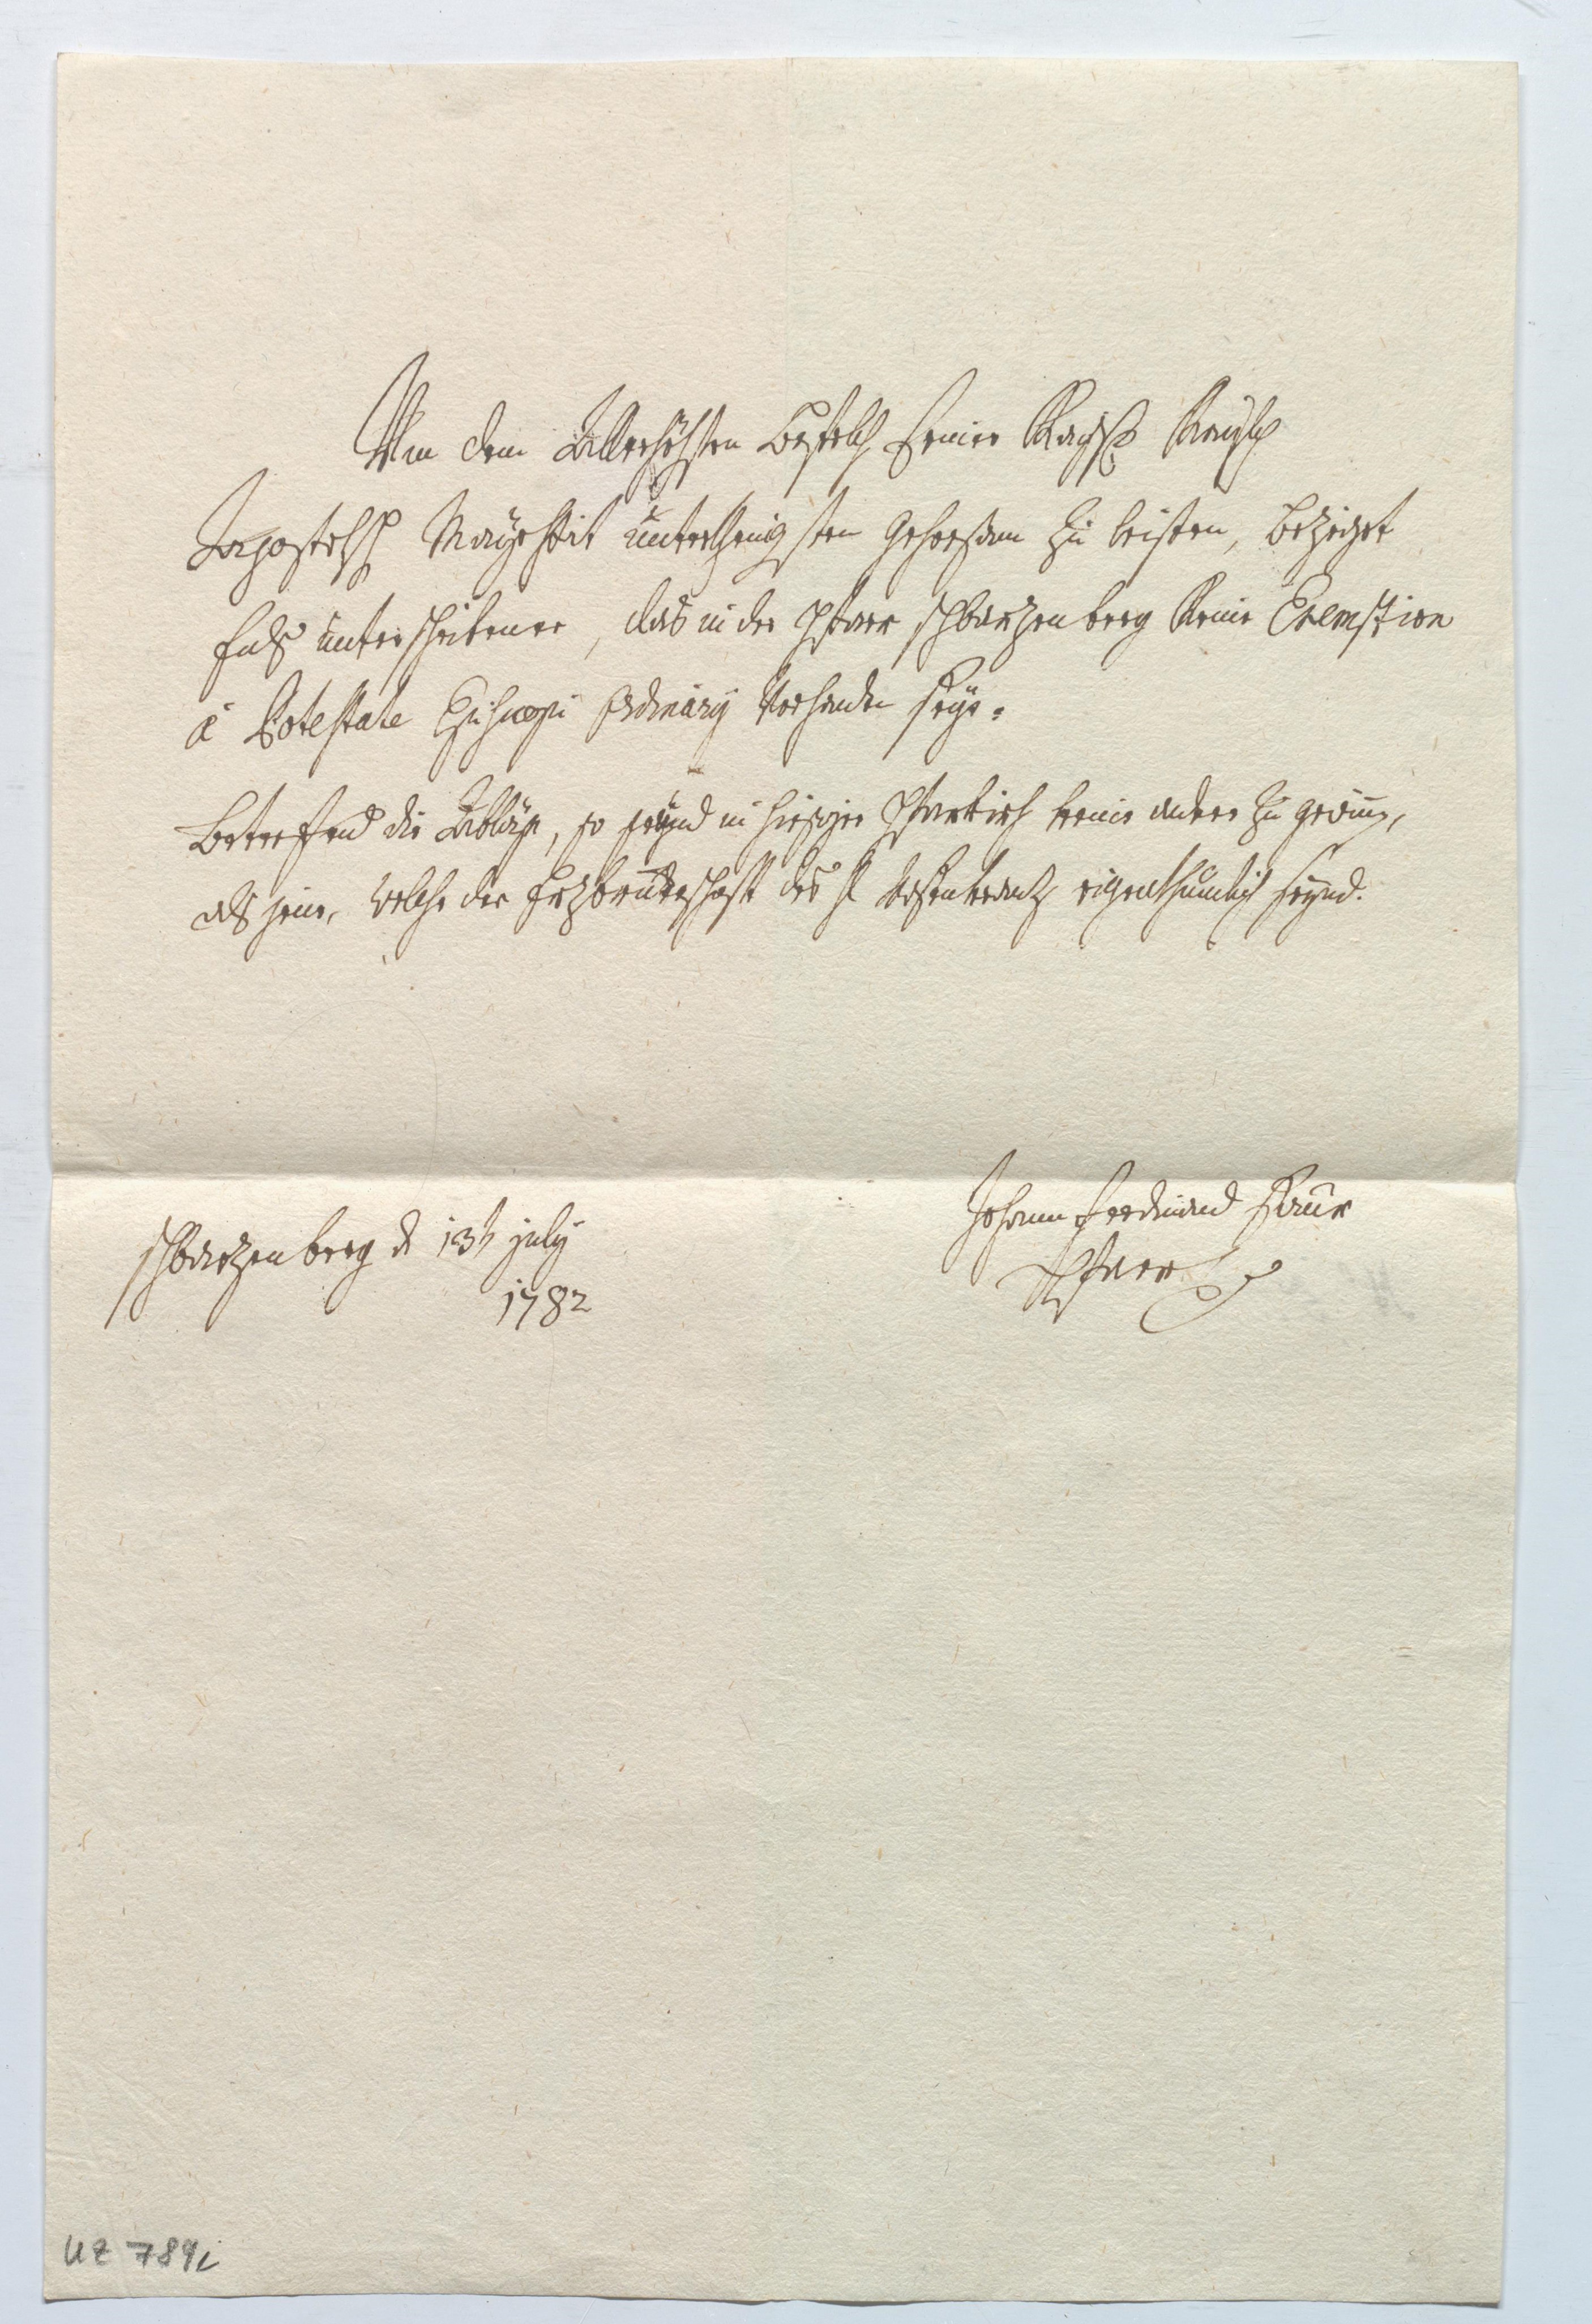 Um dem Allerhöhsten Befelch Seiner Kaysl Königl
Apostolh Mayestät unterthenigsten Gehorsam zu leisten, bezeiget
Ends unterschribener, das in der Pfarr schwarzenberg keine Exemption
à Potestate Episcopi ordinary Vorhanden seye.
Betreffend die Abläß, so seynd in hiesiger Pfarkirch keine andere zu gewinn,
als jene, welche der Erzbruderschaft des H Rosenkrantz eigenthumlich seynd.
schwarzenberg d 13t july
1782
Johann Ferdinand
Pfarr
UZ 789